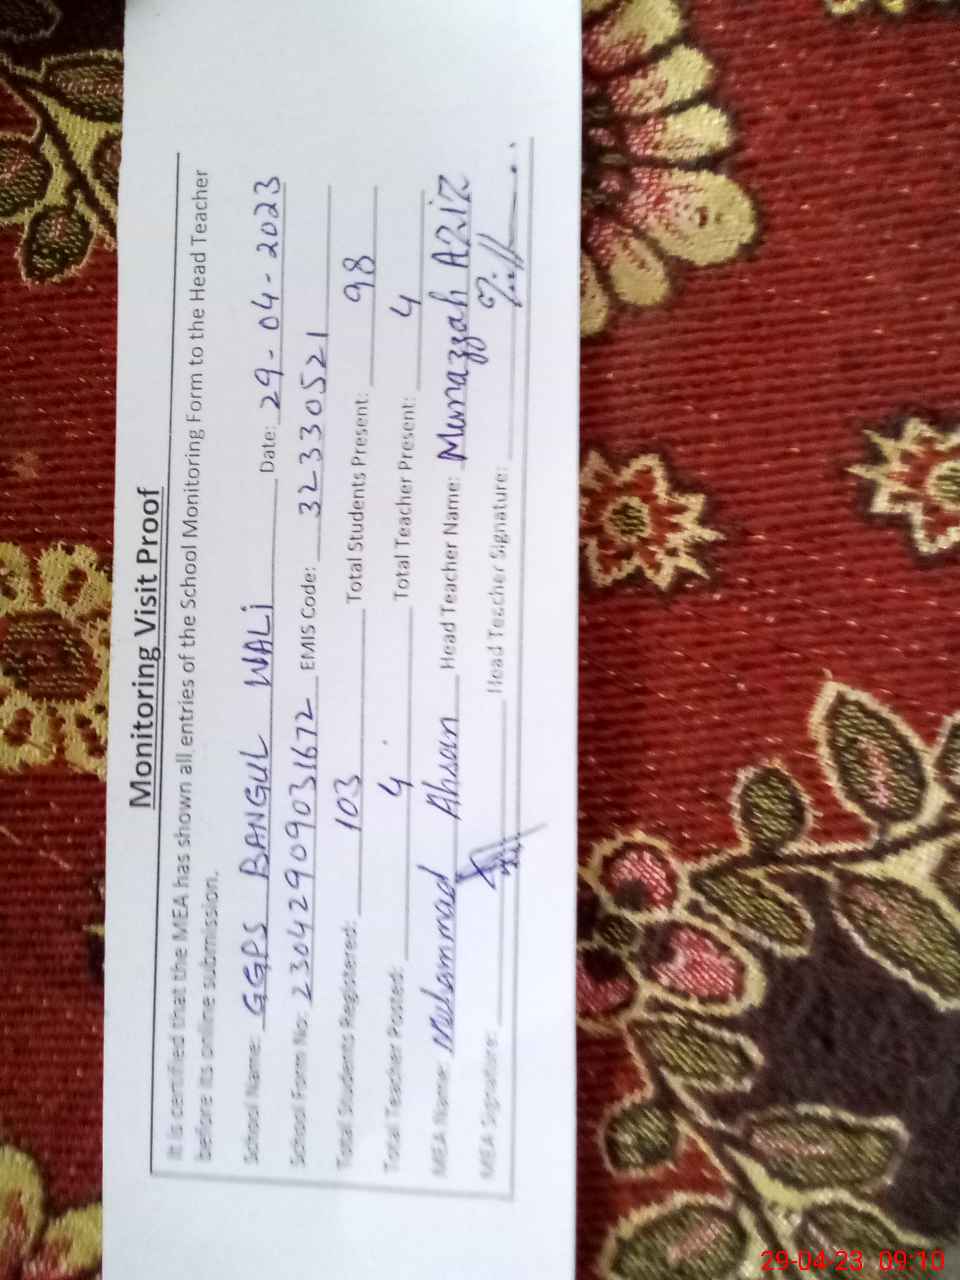 Monitoring Visit Proof
It is certified that the MEA has shown all entries of the School Monitoring Form to the Head Teacher
before its online submission.
School Name: GGPS BANGUL WALI Date: 29-04-2023
School Form No: 230429090931672 EMIS Code: 32330521
Total Students Registered: 103 Total Students Present: 98
Total Teacher Posted: 4 Total Teacher Present: 4
MEA Name: Muhammad Ahsan Head Teacher Name: Munazzah Aziz
MEA Signature: Head Teacher Signature:
29-04-23 09:10